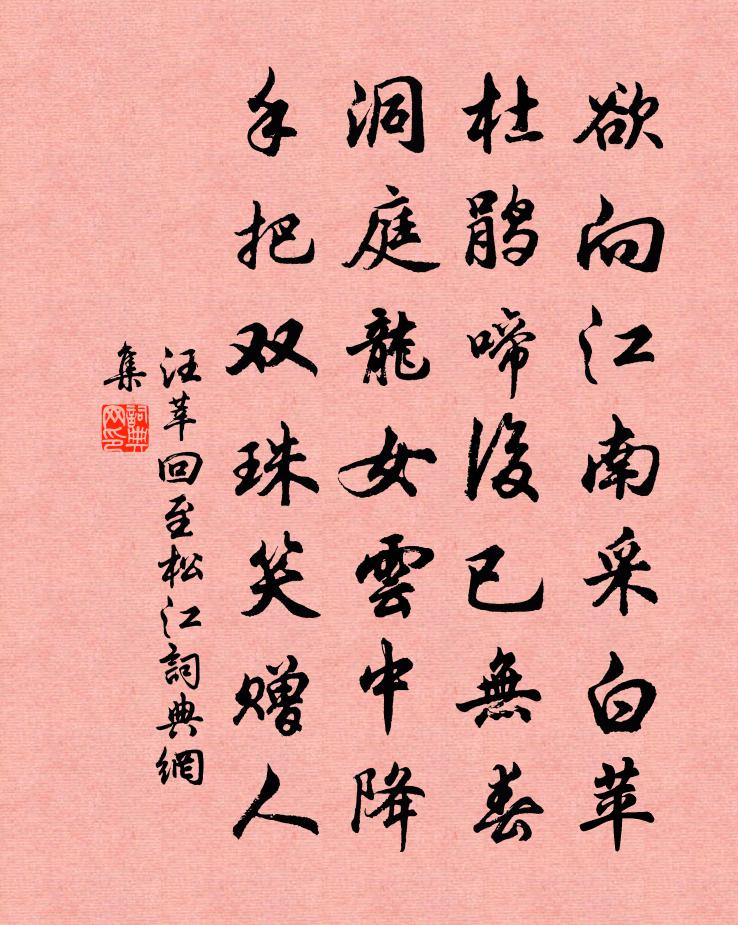 欲向江南采白苹
杜鹃啼後已無春
洞庭龍女雲中降
手把双珠笑赠人
汪莘回至松江詞典網
集
詞典网印